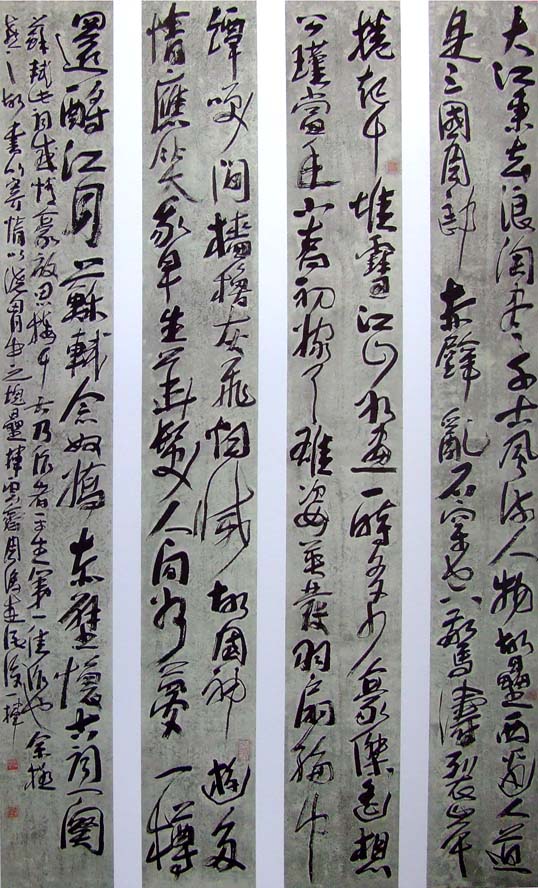 大江東去浪淘盡千古風流人物故壘西邊人道
是三國周郎赤壁亂石穿空驚濤裂岸
捲起千堆雪江山如畫一時多少豪傑遙想
公瑾當年小喬初嫁了雄姿英發羽扇綸巾
譚咲間檣櫓灰飛烟滅故國神遊多
情應笑我早生華髮人間如夢一樽
還酹江月蘇軾念奴嬌赤壁懷古詞一闋
蘇軾此詞感情豪放思接千古乃作者平生第一佳作也余極
愛之故書以寄情以澆胸中之塊壘